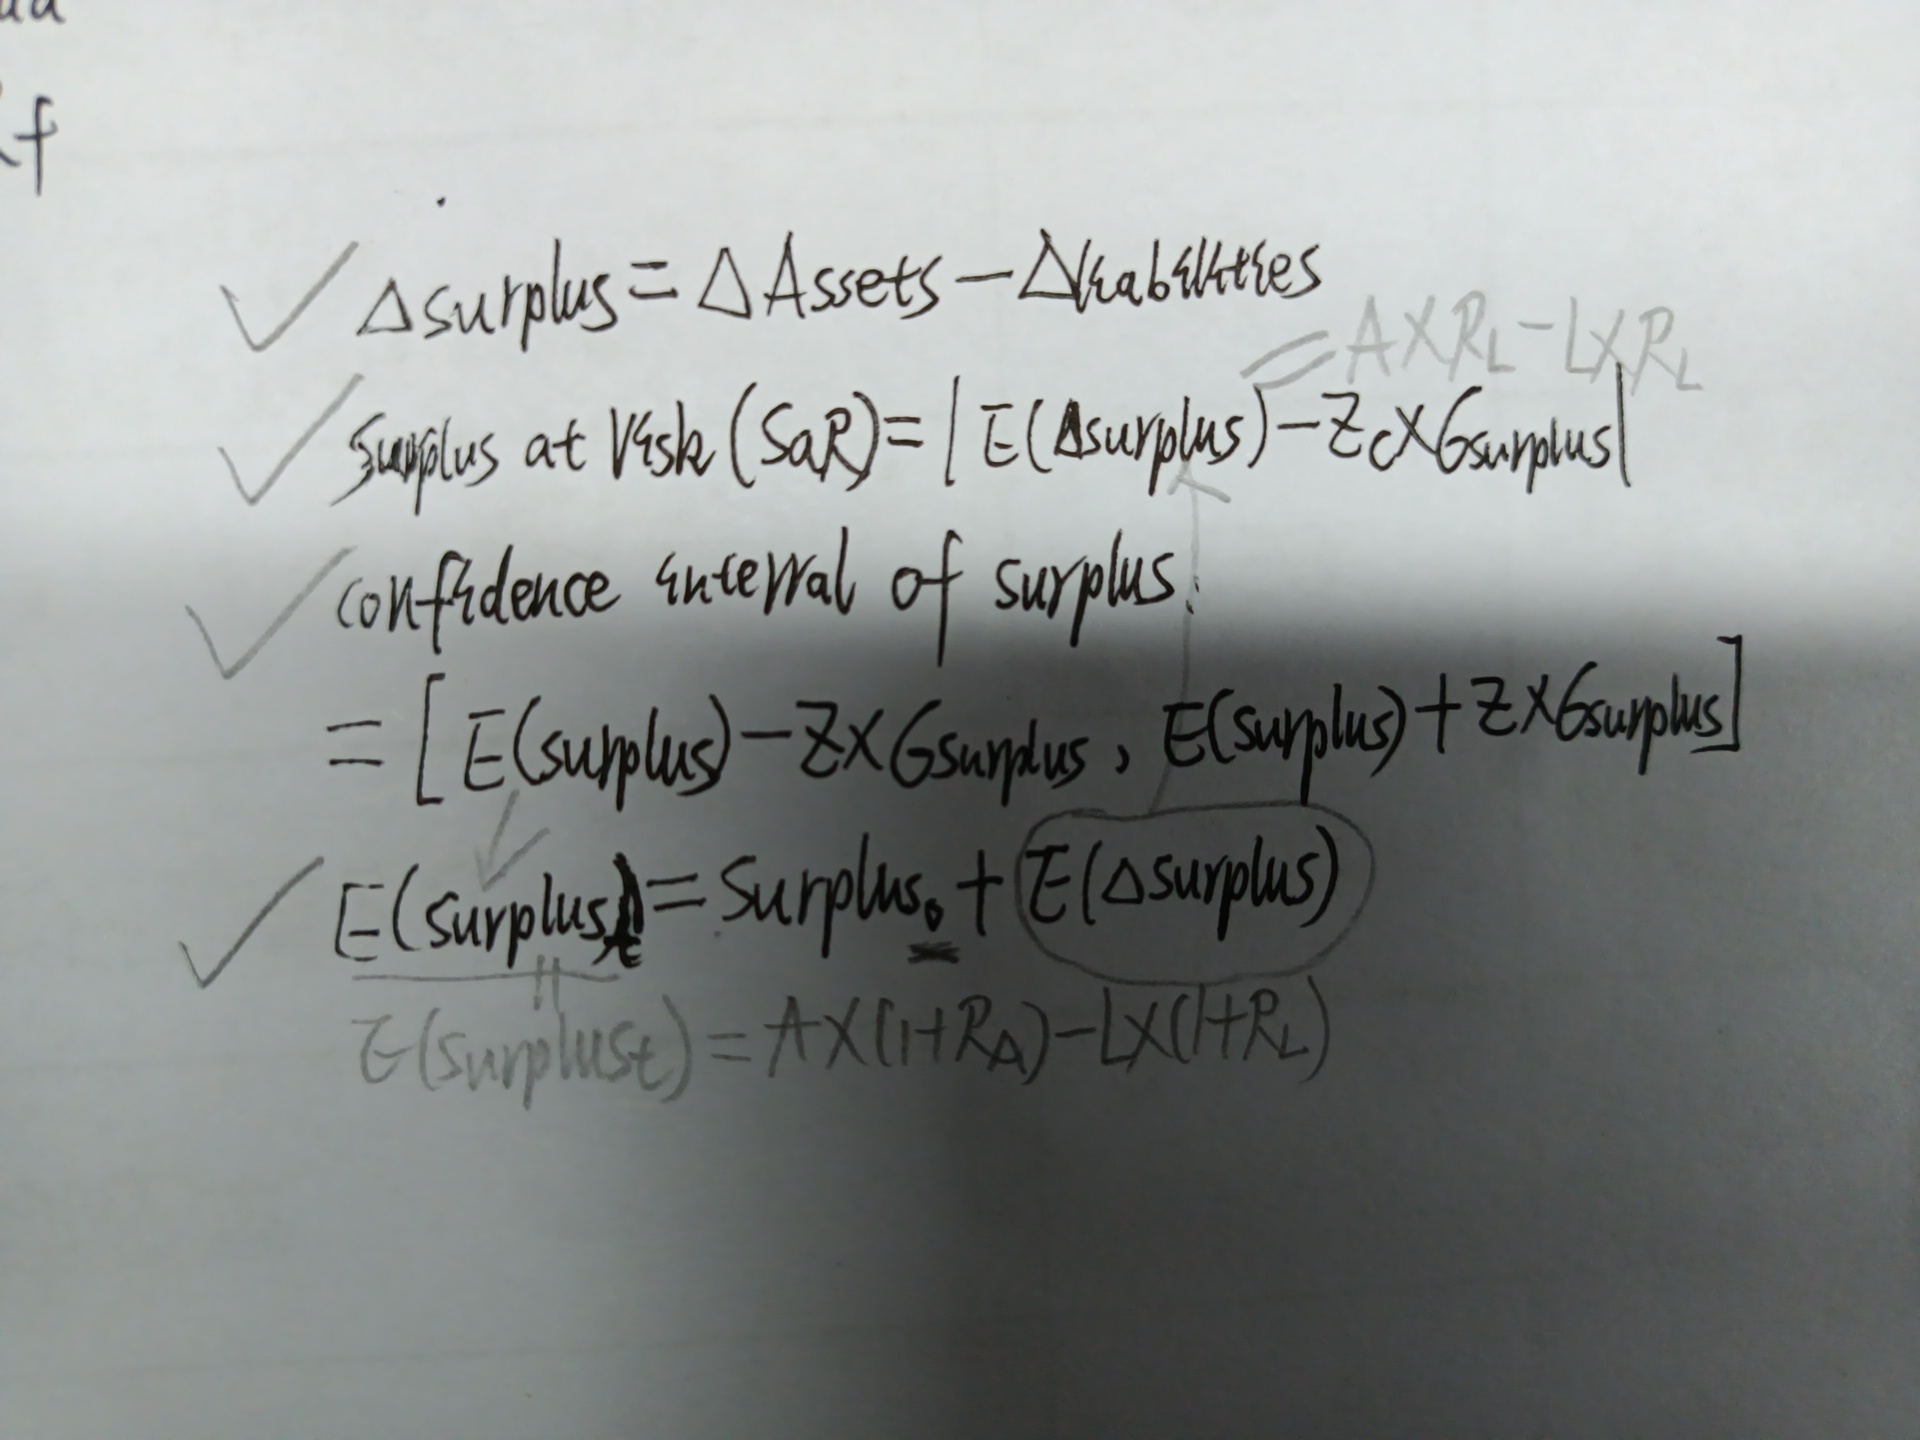 f
Δsurplus = ΔAssets - Δliabilities
= A×RL - L×RL
Surplus at risk (SaR) = | E(Δsurplus) - Zc×σsurplus|
confidence interval of surplus:
= [E(surplus) - Z×σsurplus, E(surplus) + Z×σsurplus]
E(surplust) = Surplus0 + E(Δsurplus)
E(surplust) = A×(1+RA) - L×(1+RL)